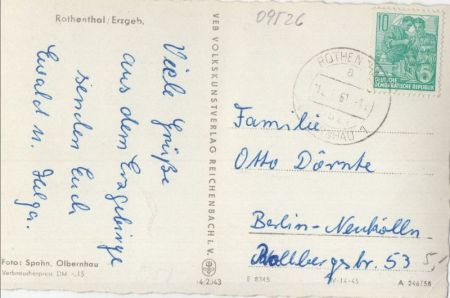 Rothenthal/Erzgeb.
Viele Grüße
aus dem Erzgebirge
senden Euch
Ewald u. Helga.
Foto: Spahn, Olbernhau
Verbraucherpreis DM
VEB VOLKSKUNSTVERLAG REICHENBACH i. V.
09526
10
DEUTSCHE
DEMOKRATISCHE REPUBLIK
ROTHEN
a
61
Familie
Otto Dörnte
Berlin-Neukölln
Rollbergstr. 53
E 8745
V-14-45
A 246/58